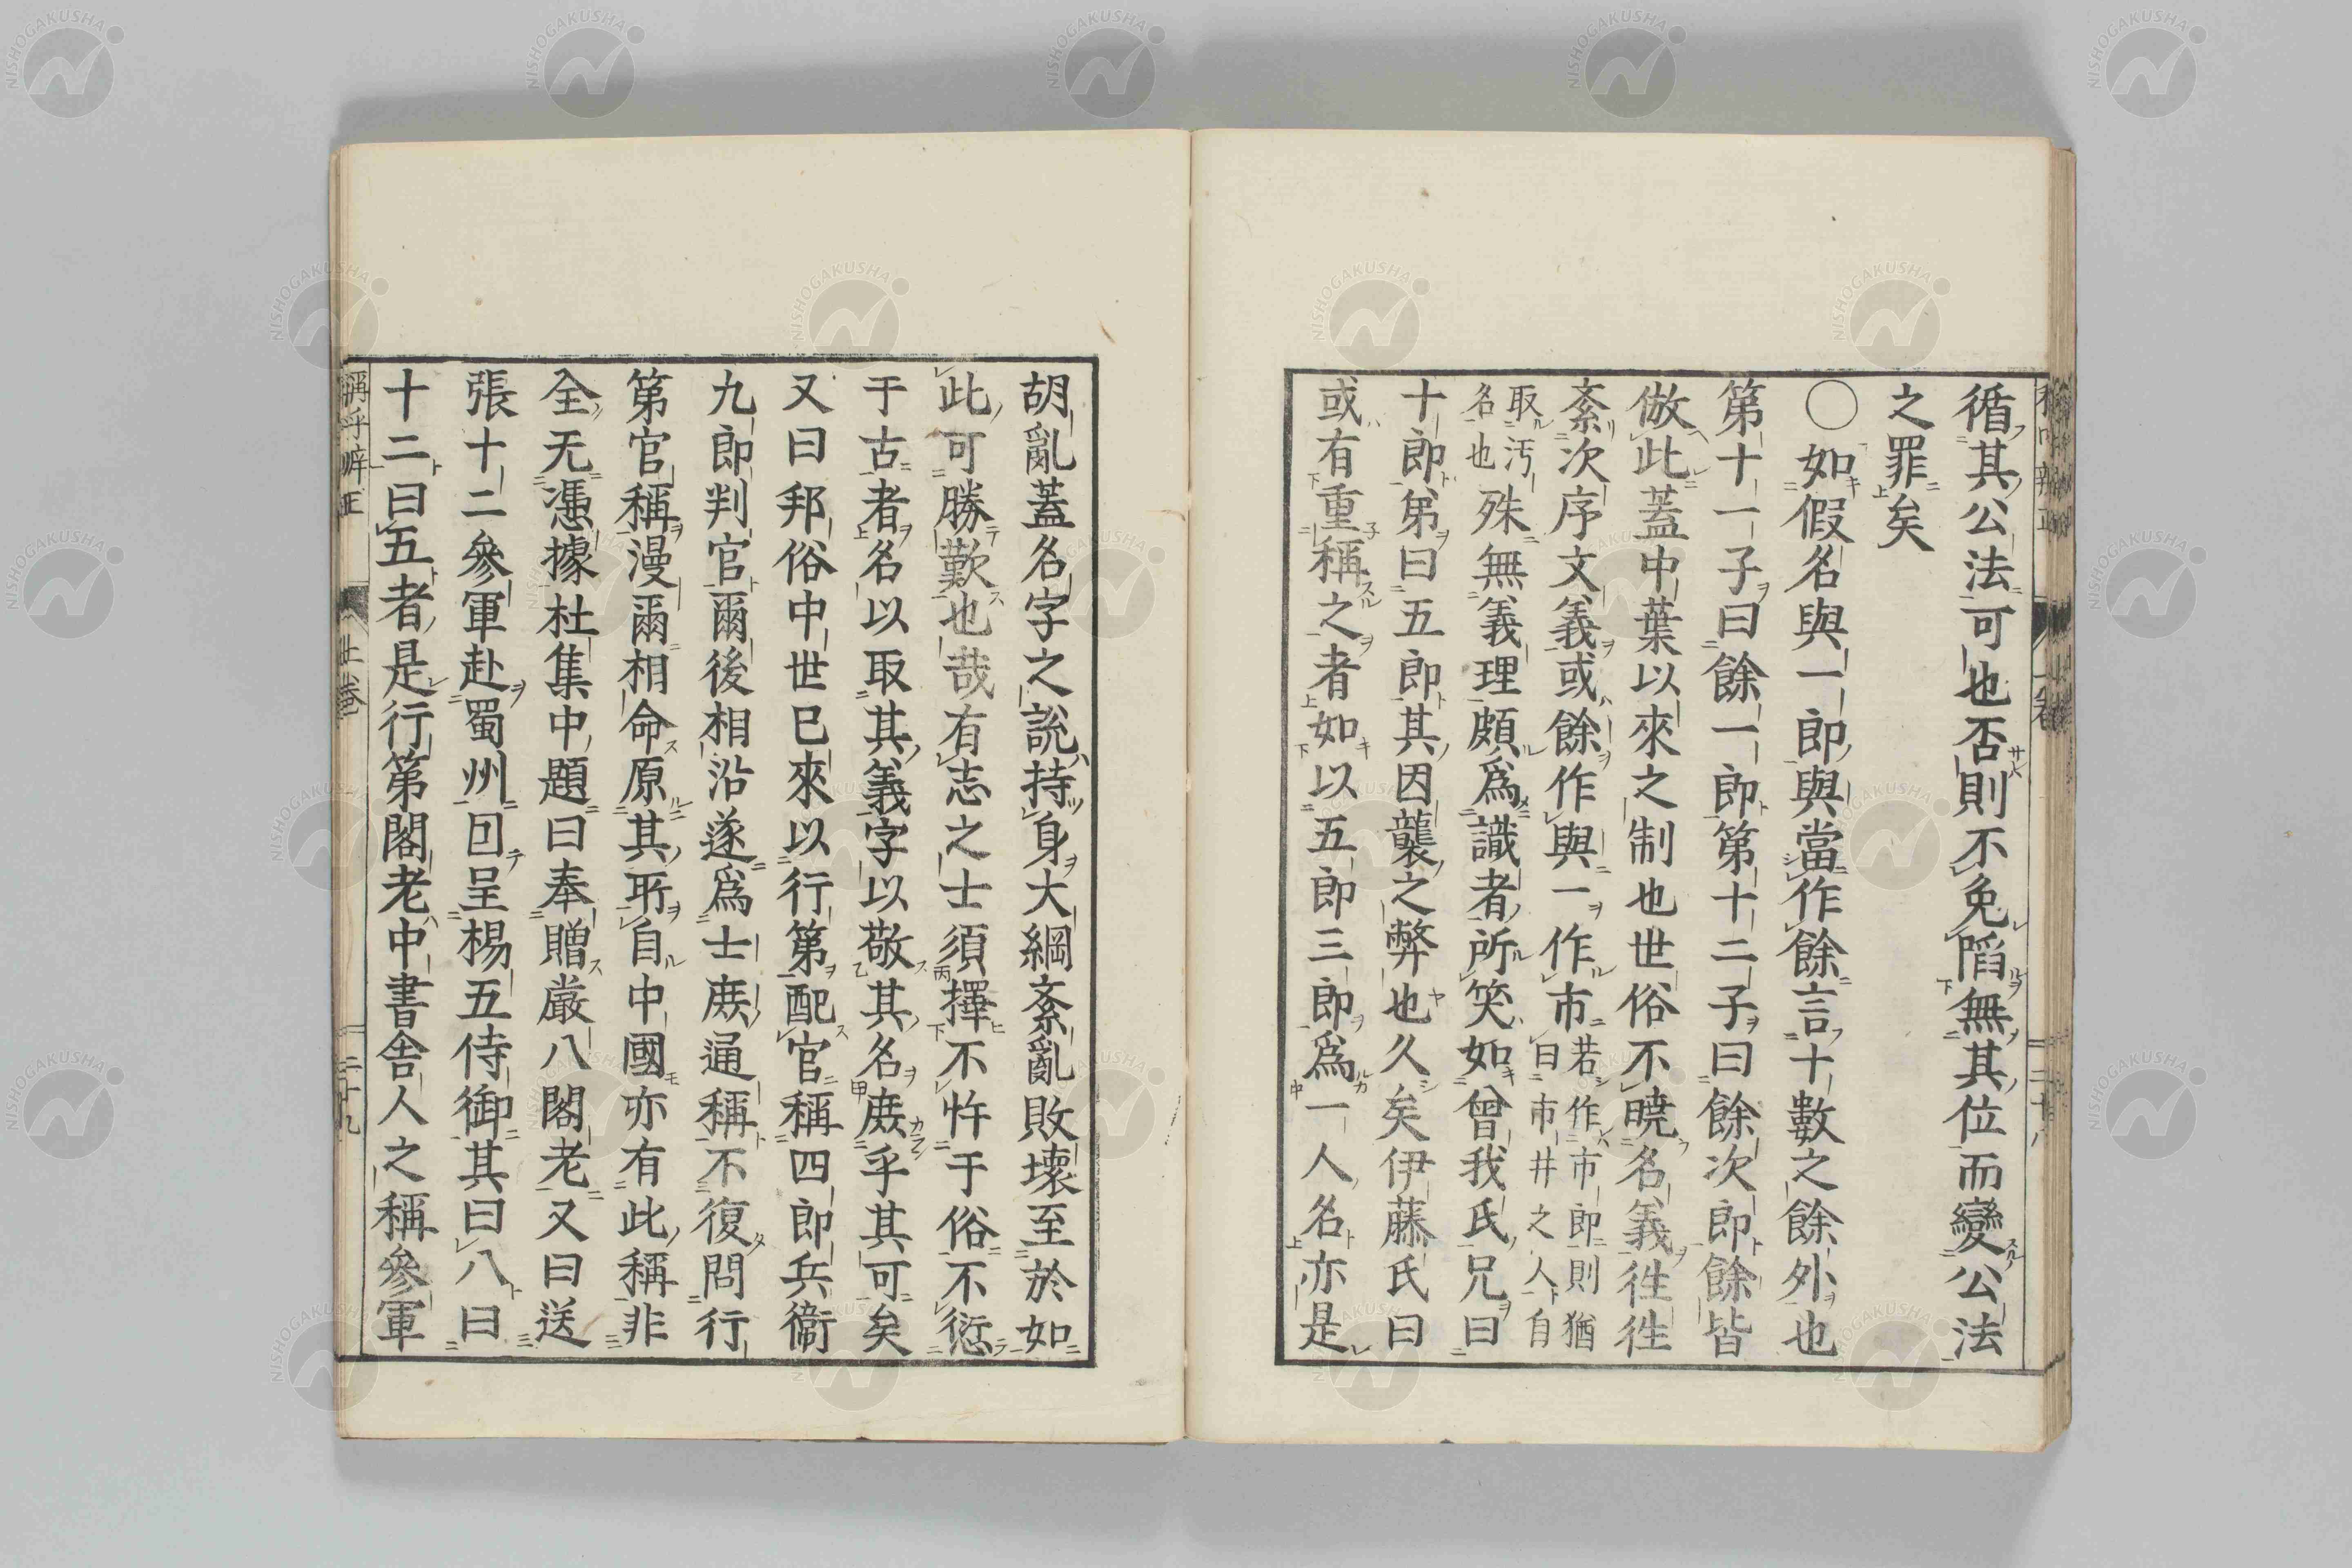 循其公法可也否則不免陷無其位而變公法
之罪矣
〇如假名與一郎與當作餘言十數之餘外也
第十一子曰餘一郎第十二子曰餘次郎餘皆
倣此蓋中葉以來之制也世俗不曉名義徃徃
紊次序文義或餘作與一作市若作市郎則猶曰市井之人自
取汚名也殊無義理頗爲識者所笑如曾我氏兄曰
十郎弟曰五郎其因襲之弊也久矣伊藤氏曰
或有重稱之者如以五郎三郎爲一人名亦是
胡亂蓋名字之說持身大綱紊亂敗壞至於如
此可勝歎也哉有志之士須擇不忤于俗不愆
于古者名以取其義字以敬其名庻乎其可矣
又曰邦俗中世已來以行第配官稱四郎兵衞
九郎判官爾後相沿遂爲士庻通稱不復問行
第官稱漫爾相命原其所自中國亦有此稱非
全无憑據杜集中題曰奉贈嚴八閣老又曰送
張十二參軍赴蜀州回呈楊五侍御其曰八曰
十二曰五者是行第閣老中書舍人之稱參軍
稱呼辨正 上巻 二十九